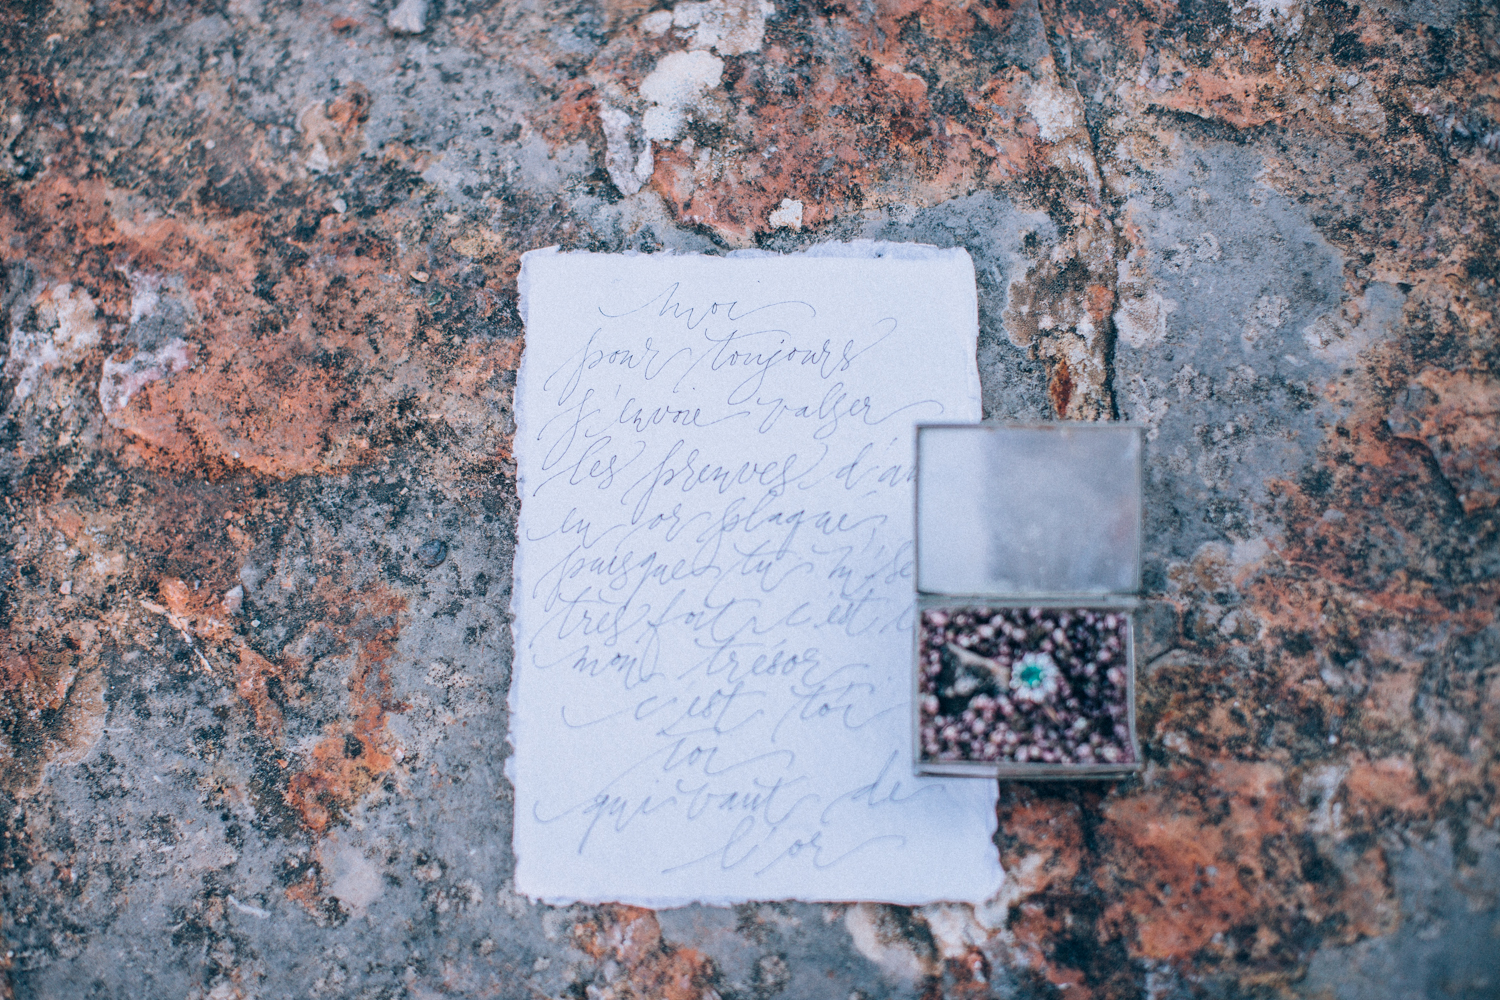 moi
pour toujours
J'envoie valser
les preuves d'am
en or plaqué,
puisque tu m'se
très fort c'est, l
mon trésor
c'est toi
toi
qui vaut de
l'or